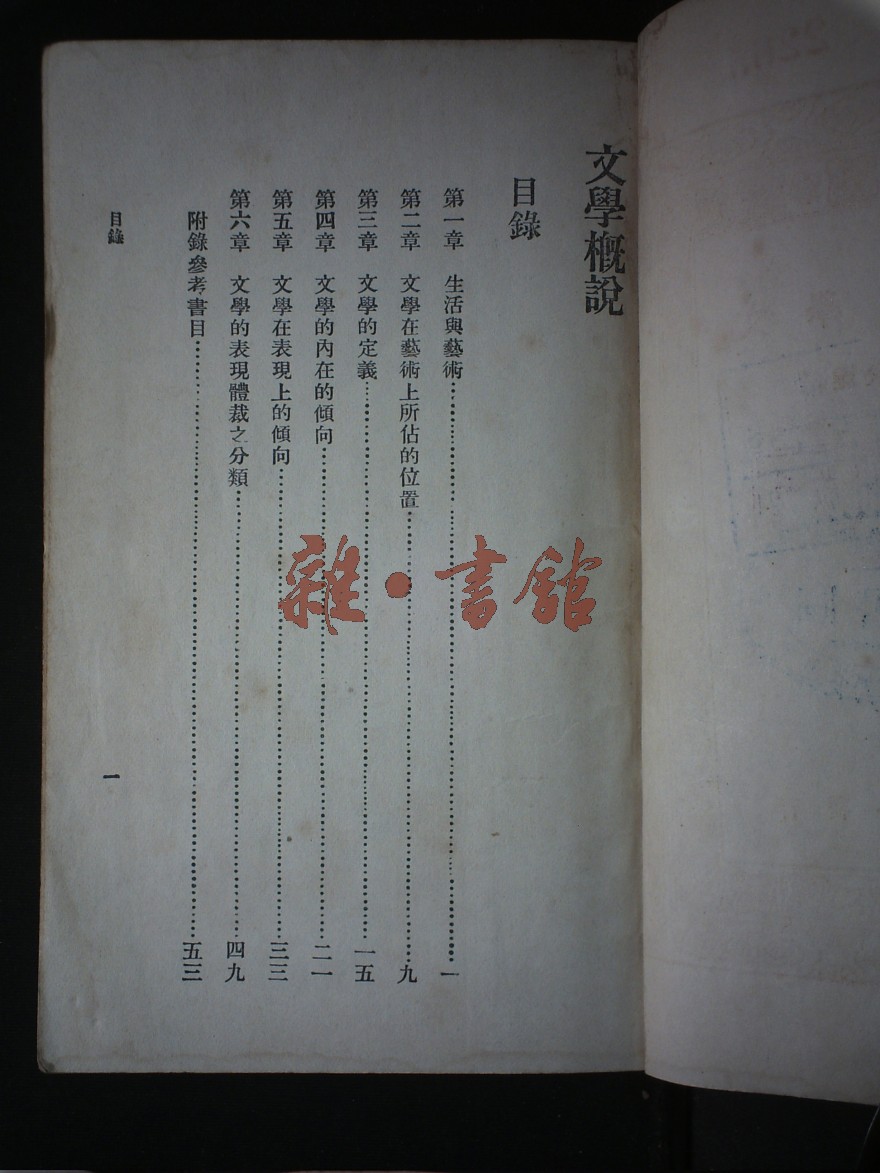 文學概說
目錄
第一章　生活與藝術……一
第二章　文學在藝術上所佔的位置……九
第三章　文學的定義……一五
第四章　文學的內在的傾向……二一
第五章　文學在表現上的傾向……三三
第六章　文學的表現體裁之分類……四九
附錄參考書目……五三
目錄
一
雜·書館